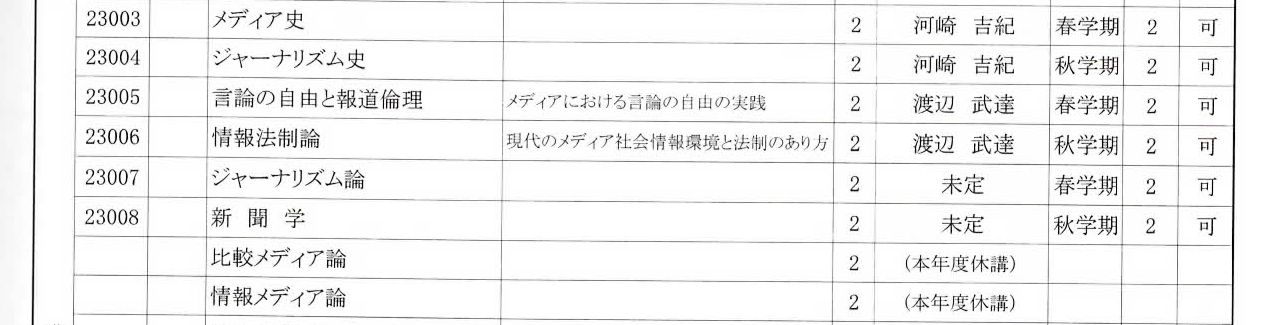 23003 メディア史 2 河崎 吉紀 春学期 2 可
23004 ジャーナリズム史 2 河崎 吉紀 秋学期 2 可
23005 言論の自由と報道倫理 メディアにおける言論の自由の実践 2 渡辺 武達 春学期 2 可
23006 情報法制論 現代のメディア社会情報環境と法制のあり方 2 渡辺 武達 秋学期 2 可
23007 ジャーナリズム論 2 未定 春学期 2 可
23008 新 聞 学 2 未定 秋学期 2 可
比較メディア論 2 (本年度休講)
情報メディア論 2 (本年度休講)